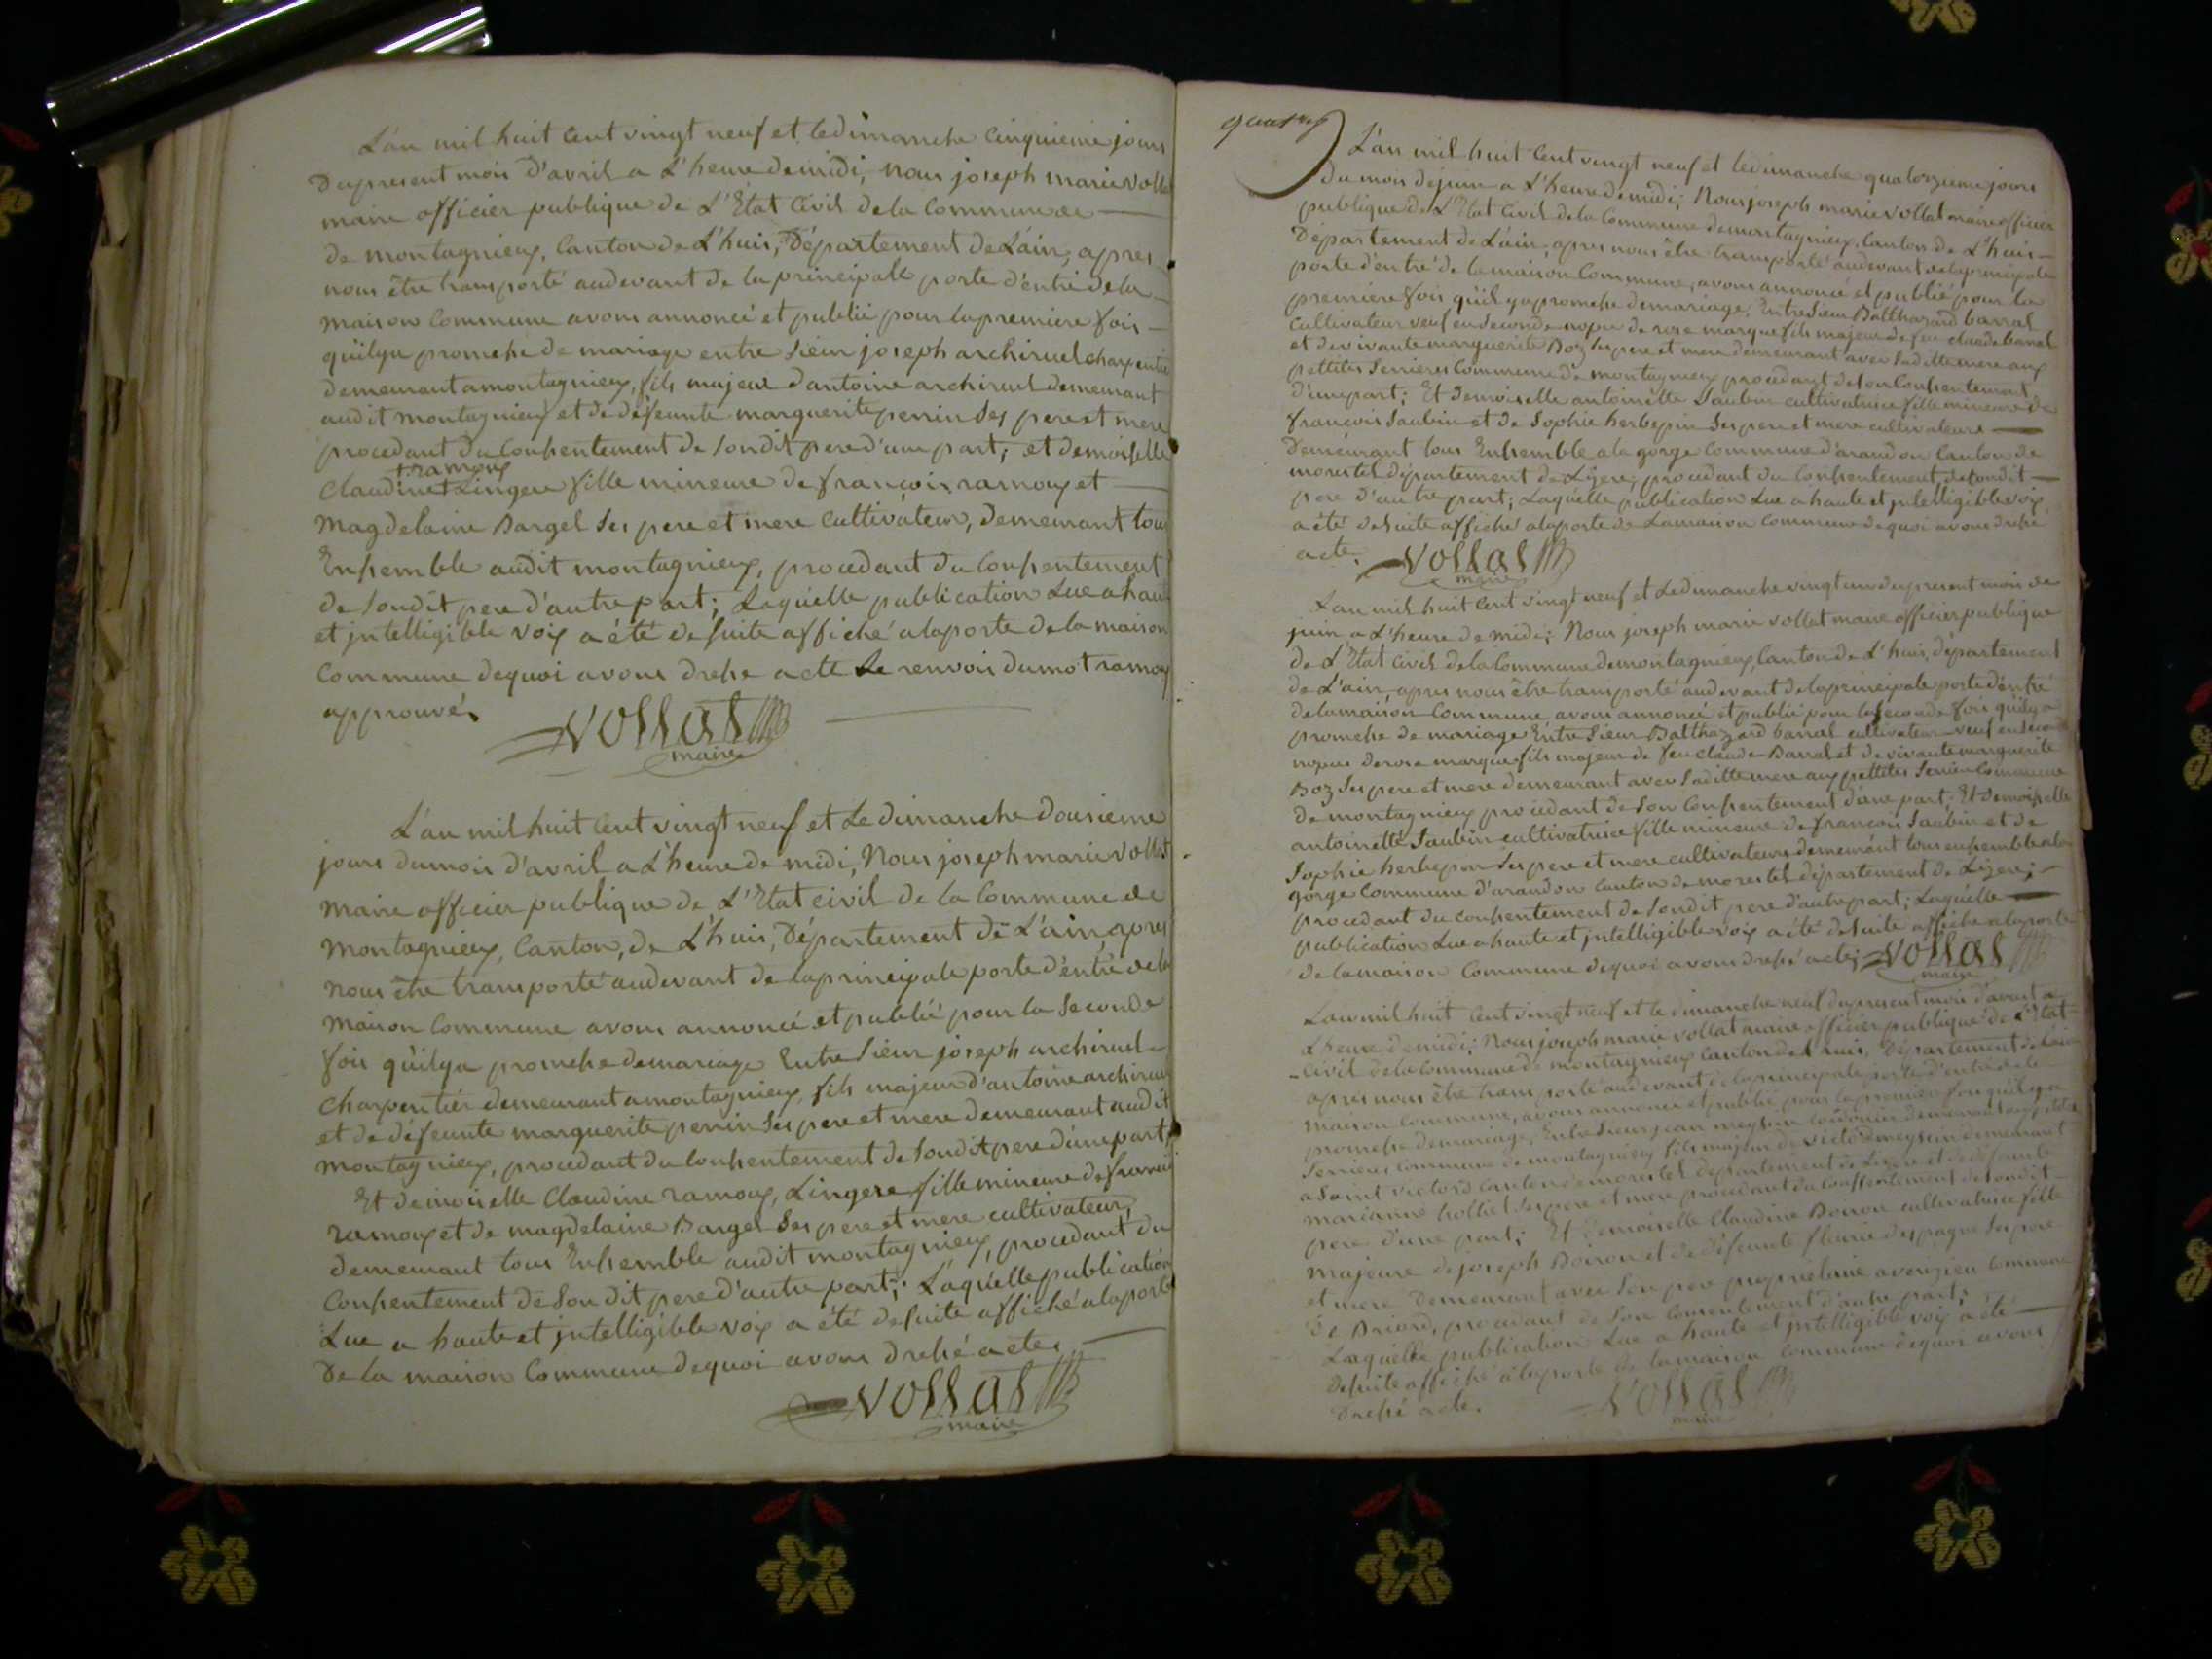 L'an mil huit Cent vingt neuf et le dimanche Cinquieme jours
du present mois d'avril a L'heure de midi, nous joseph marie Vollat
maire officier publique de L'Etat Civil de la Commune de
de montagnieux, Canton de L'huis, Département de L'ain, apres
nous être transporté audevant de la principale porte d'entré de la
maison Commune avons annoncé et publié pour la premiere fois
qu'il y a promesse de mariage entre Sieur joseph archiruel charpentier
demeurant a montagnieux, fils majeur d'antoine archiruel demeurant
audit montagnieux et de défeunte marguerite perrin Ses pere et mere
procedant du Consentement de Sondit pere d'une part; et demoiselle
+ ramoux
Claudine + Lingere fille mineure de françois ramoux et
Magdelaine Bargel Ses pere et mere Cultivateur, demeurant tous
Ensemble audit montagnieux, procedant du Consentement
de Sondit pere d'autre part; Laquelle publication Lue a haute
et jntelligible voix a été de suite affiché a la porte de la maison
Commune de quoi avons dressé acte Le renvoi du mot ramoux
approuvé.
Vollat
maire
L'an mil huit Cent vingt neuf et Le dimanche dousieme
jours du mois d'avril a L'heure de midi, Nous joseph marie Vollat
Maire officier publique de L'Etat civil de la Commune de
Montagnieux, Canton, de L'huis, Département de L'ain, apres
nous être transporté audevant de la principale porte d'entré de la
Maison Commune avons annoncé et publié pour la Seconde
fois qu'il y a promesse de mariage Entre Sieur joseph archiruel
Charpentier demeurant a montagnieux, fils majeur d'antoine archiruel
et de défeunte marguerite perrin Ses pere et mere demeurant audit
montagnieux, procedant du Consentement de Sondit pere d'une part,
Et demoiselle Claudine ramoux, Lingere fille mineure de francois
ramoux et de magdelaine Bargel Ses pere et mere cultivateur,
demeurant tous Ensemble audit montagnieux, procedant du
Consentement de Son dit pere d'autre part; Laquelle publication
Lue a haute et jntelligible voix a été de suite affiché a la porte
De la maison Commune de quoi avons dressé acte.
Vollat
maire
quatre
L'an mil huit Cent vingt neuf et le dimanche quatorzieme jours
du mois de juin a L'heure de midi; Nous joseph marie Vollat maire officier
publique de L'Etat Civil de la Commune de montagnieux, Canton de L'huis
Département de L'ain, apres nous être transporté audevant de la principale
porte d'entré de la maison Commune, avons annoncé et publié pour la
premiere fois qu'il y a promesse de mariage, Entre Sieur Balthazard barral
Cultivateur veuf en Seconde nopse de rose marque fils majeur de feu claude barral
et de vivante marguerite Boz Ses pere et mere demeurant avec Saditte mere aux
pettites Serrieres Commune de montagnieux procedant de Son Consentement
d'une part; Et demoiselle antoinette Saubin cultivatrice fille mineure de
françois Saubin et de Sophie herbepin Ses pere et mere cultivateurs
Demeurant tous Ensemble a la gorge Commune d'arandon Canton de
morestel département de Lizere; procedant du Consentement de Sondit
pere d'autre part; Laquelle publication Lue a haute et jntelligible voix
a été de suite affiché a la porte de La maison Commune de quoi avons dressé
acte. Vollat
maire
L'an mil huit Cent vingt neuf et Le dimanche vingt un du present mois de
juin a L'heure de midi; Nous joseph marie vollat maire officier publique
de L'Etat Civil de la Commune de montagnieux, Canton de L'huis, département
de L'ain, apres nous être transporté audevant de la principale porte d'entré
de la maison Commune avons annoncé et publié pour la Seconde fois qu'il y a
promesse de mariage Entre Sieur Balthazard barral cultivateur veuf en Seconde
nopse de rose marque fils majeur de feu Claude Barral et de vivante marguerite
Boz Ses pere et mere demeurant avec Saditte mere aux pettites Serriere Commune
De montagnieux procedant de Son Consentement d'une part; Et demoiselle
antoinette Saubin cultivatrice fille mineure de francois Saubin et de
Sophie herbepin Ses pere et mere cultivateurs demeurant tous ensemble a la
gorge Commune d'arandon canton de morestel département de Lizere;
procedant du consentement de Sondit pere d'autre part; Laquelle
publication Lue a haute et jntelligible voix a été de suite affiché a la porte
de la maison Commune de quoi avons dressé acte; Vollat
maire
L'an mil huit Cent vingt neuf et le dimanche neuf du present mois d'aoust a
L'heure de midi; Nous joseph marie vollat maire officier publique de L'Etat
Civil de la Commune de montagnieux canton de L'huis, Département de L'ain
apres nous être transporté audevant de la principale porte d'entré de la
maison Commune, avons annoncé et publié pour la premiere fois qu'il y a
promesse de mariage, Entre Sieur jean meysin demeurant aux pettites
Serrieres Commune de montagnieux fils majeur de victor meysin demeurant
a Saint victor Canton de morestel département de Lizere et de défeunte
marianne Ses pere et mere procedant du Consentement de Sondit
pere d'une part; Et demoiselle Claudine Boiron cultivatrice fille
Majeure de joseph Boiron et de défeunte fleurie despagne Ses pere
et mere Demeurant avec Son pere proprietaire a verizieu Commune
de Briord, procedant de Son Consentement d'autre part;
Laquelle publication Lue a haute et jntelligible voix a été
De suite affiché a la porte de la maison Commune de quoi avons
Dressé acte. Vollat
maire